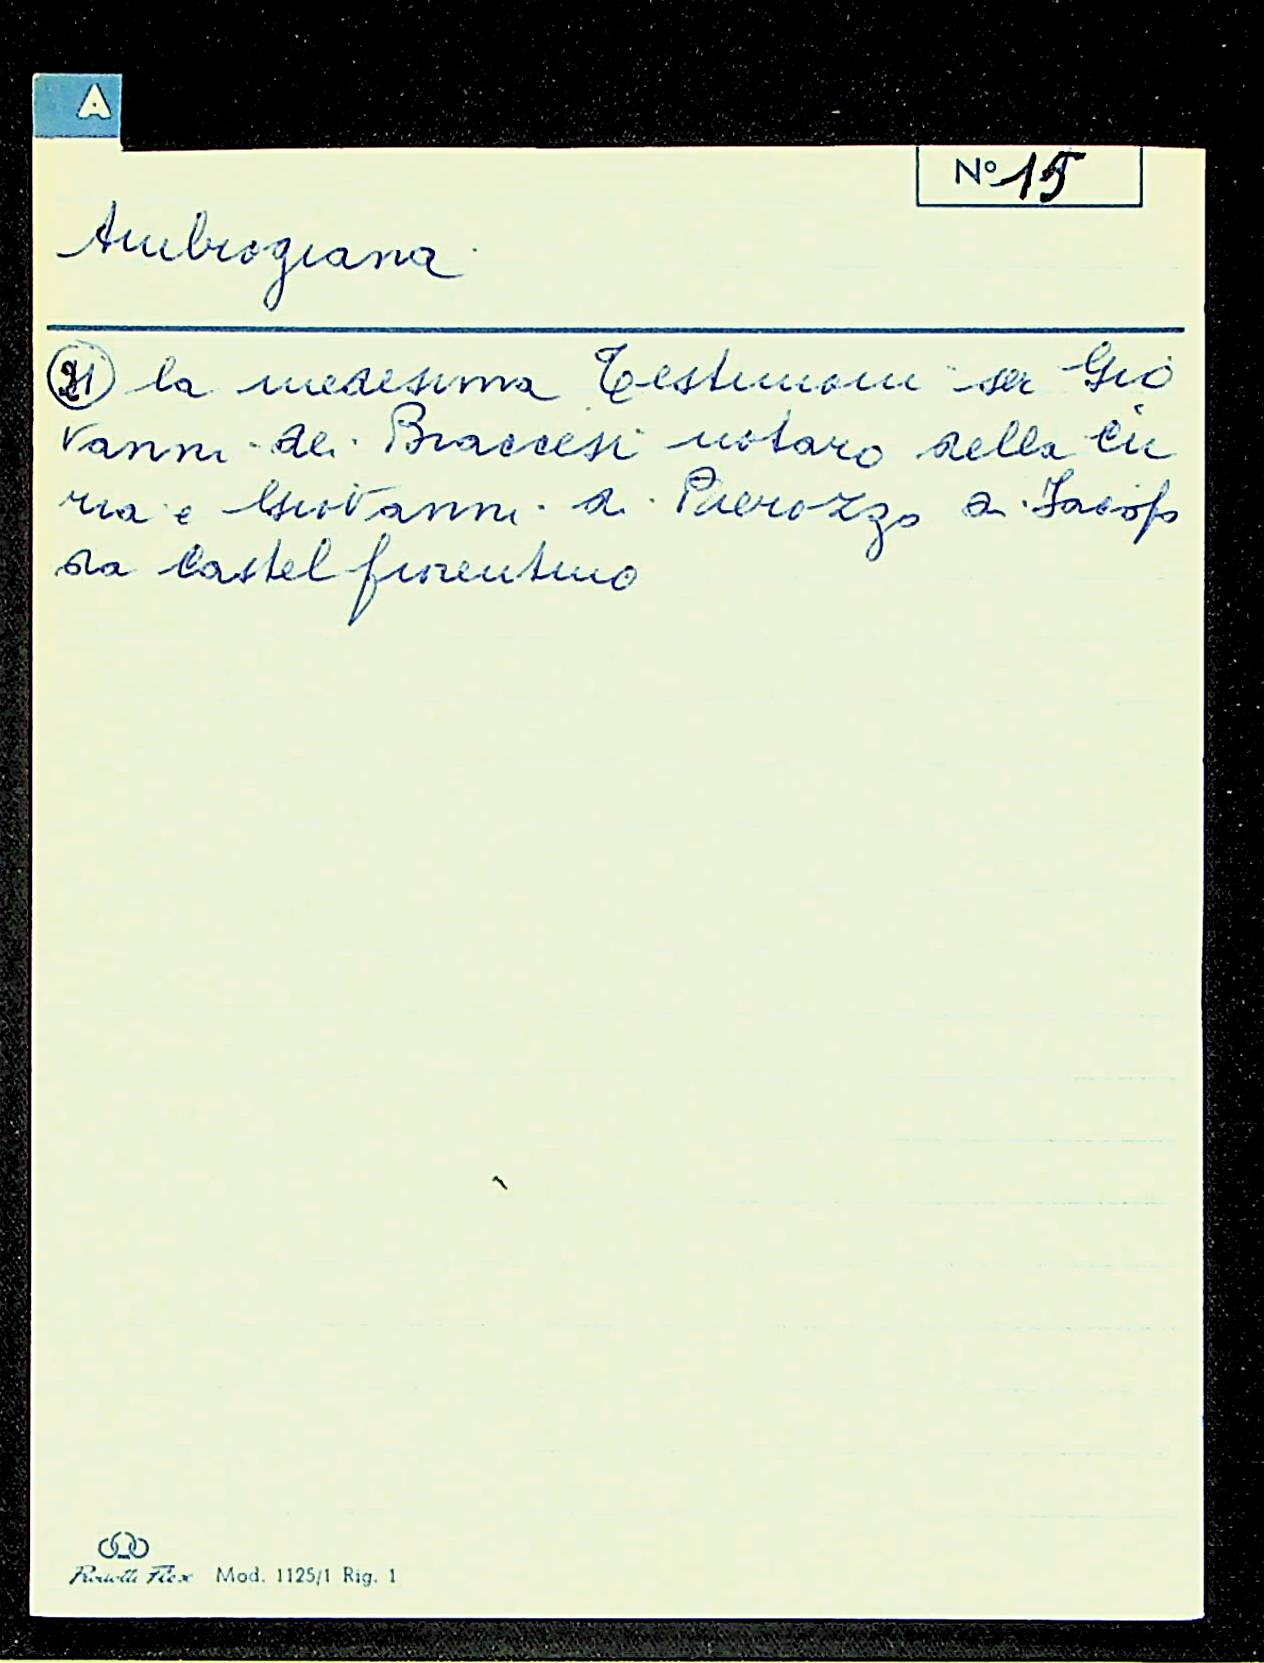 A
N° 15
Ambrogiana
21 la medesima Testimoni ser Gio
vanni dei Braccesi notaro della Cu
ria e Giovanni di Pierozzo di Jacopo
da Castel fiorentino
Flex Mod. 1125/1 Rig. 1